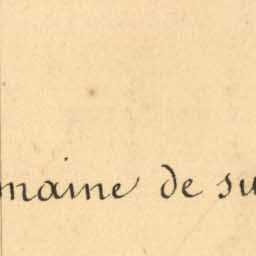 maine de su